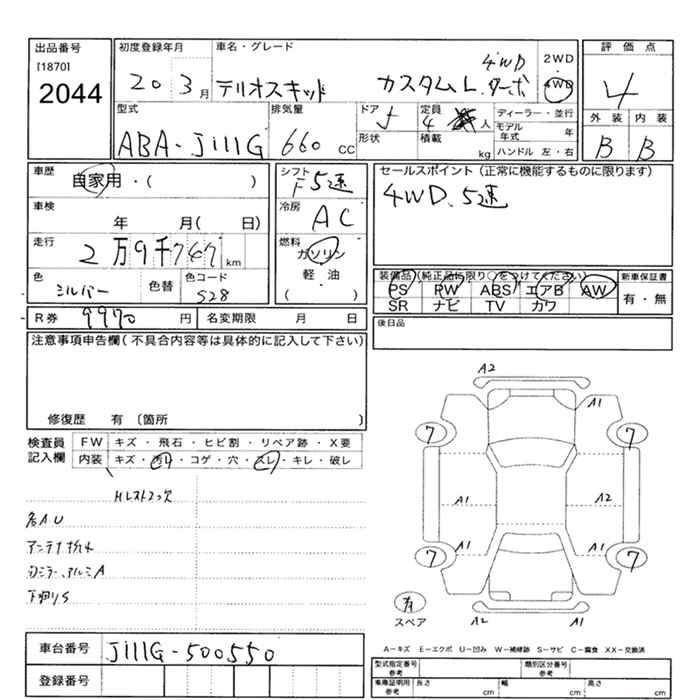 出品番号
[1870]
2044
初度登録年月
20 3月
車名・グレード
テリオスキッド カスタムL.ターボ 4WD
2WD
4WD
評価点
4
外装 内装
B B
型式
ABA-J111G
排気量
660 CC
ドア 5
形状
定員 4 人
積載 kg
ディーラー・並行
モデル年式 年
ハンドル 左・右
車歴 自家用・( )
シフト F5速
セールスポイント(正常に機能するものに限ります)
4WD、5速
車検 年 月( 日)
冷房 AC
走行 2万9千747km
燃料 ガソリン
軽・油
( )
色 シルバー 色替
色コード S28
装備品(純正品に限り○をつけてください)
PS PW ABS エアB AW
SR ナビ TV カワ
新車保証書
有・無
R券 9970 円
名変期限 月 日
後日品
注意事項申告欄(不具合内容等は具体的に記入して下さい)
修復歴 有 〔箇所 〕
検査員記入欄
FW キズ・飛石・ヒビ割・リペア跡・X要
内装 キズ・汚レ・コゲ・穴・スレ・キレ・破レ
Hレストフック欠
各AU
下廻りS
A2
A1
7 7
A1 A2
A1 A1
7 7
有
スペア
A2 A1
車台番号 J111G-500550
登録番号
A－キズ E－エクボ U－凹み W－補修跡 S－サビ C－腐食 XX－交換済
型式指定番号参考
類別区分番号参考
車庫証明用参考 長さ cm 幅 cm 高さ cm